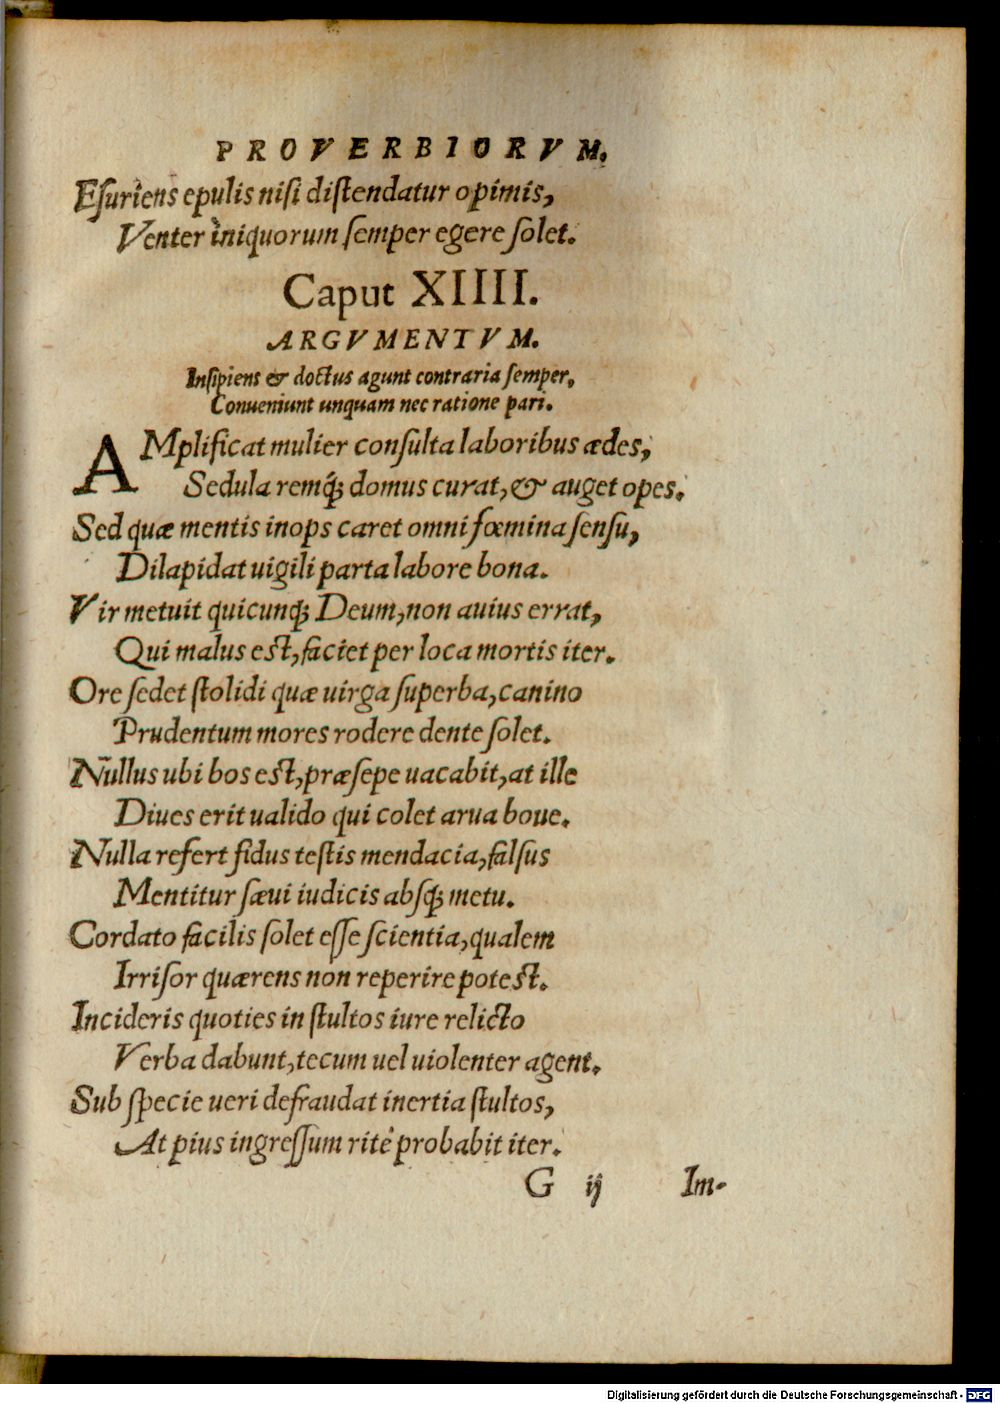 PROVERBIORVM.
Eſuriens epulis niſi diſtendatur opimis,
Venter iniquorum ſemper egere ſolet.
Caput XIIII.
ARGVMENTVM.
Inſipiens & doctus agunt contraria ſemper,
Conueniunt unquam nec ratione pari.
AMplificat mulier conſulta laboribus ædes,
Sedula remq́; domus curat, & auget opes.
Sed quæ mentis inops caret omni fœmina ſenſu,
Dilapidat uigili parta labore bona.
Vir metuit quicunq; Deum, non auius errat,
Qui malus eſt, faciet per loca mortis iter.
Ore ſedet ſtolidi quæ uirga ſuperba, canino
Prudentum mores rodere dente ſolet.
Nullus ubi bos eſt, præſepe uacabit, at ille
Diues erit ualido qui colet arua boue.
Nulla refert fidus teſtis mendacia, falſus
Mentitur ſæui iudicis abſq; metu.
Cordato facilis ſolet eſſe ſcientia, qualem
Irriſor quærens non reperire poteſt.
Incideris quoties in ſtultos iure relicto
Verba dabunt, tecum uel uiolenter agent.
Sub ſpecie ueri defraudat inertia ſtultos,
At pius ingreſſum ritè probabit iter.
G ij Im-
Digitalisierung gefördert durch die Deutsche Forschungsgemeinschaft - DFG